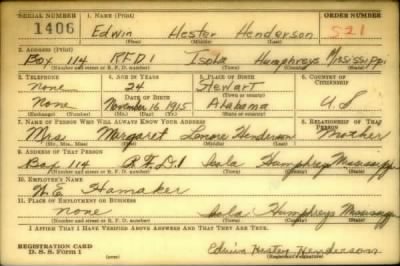 SERIAL NUMBER 1. NAME (Print) ORDER NUMBER
1406 Edwin Hester Henderson S21
(First) (Middle) (Last)
2. ADDRESS (Print)
Box 114 RFD1 Isola Humphreys Mississippi
(Number and street or R. F. D. number) (Town) (County) (State)
3. TELEPHONE 4. AGE IN YEARS 5. PLACE OF BIRTH 6. COUNTRY OF CITIZENSHIP
None 24 Stewart
DATE OF BIRTH (Town or county)
None November 16 1915 Alabama U S
(Exchange) (Number) (Mo.) (Day) (Yr.) (State or country)
7. NAME OF PERSON WHO WILL ALWAYS KNOW YOUR ADDRESS 8. RELATIONSHIP OF THAT PERSON
Mrs. Margaret Lenore Henderson Mother
(Mr., Mrs., Miss) (First) (Middle) (Last)
9. ADDRESS OF THAT PERSON
Box 114 R.F.D.1 Isola Humphrey Mississippi
(Number and street or R. F. D. number) (Town) (County) (State)
10. EMPLOYER'S NAME
W.E. Hamaker
11. PLACE OF EMPLOYMENT OR BUSINESS
none Isola Humphreys Mississippi
(Number and street or R. F. D. number) (Town) (County) (State)
I AFFIRM THAT I HAVE VERIFIED ABOVE ANSWERS AND THAT THEY ARE TRUE.
REGISTRATION CARD
D. S. S. Form 1 Edwin Hester Henderson
(Registrant's signature)